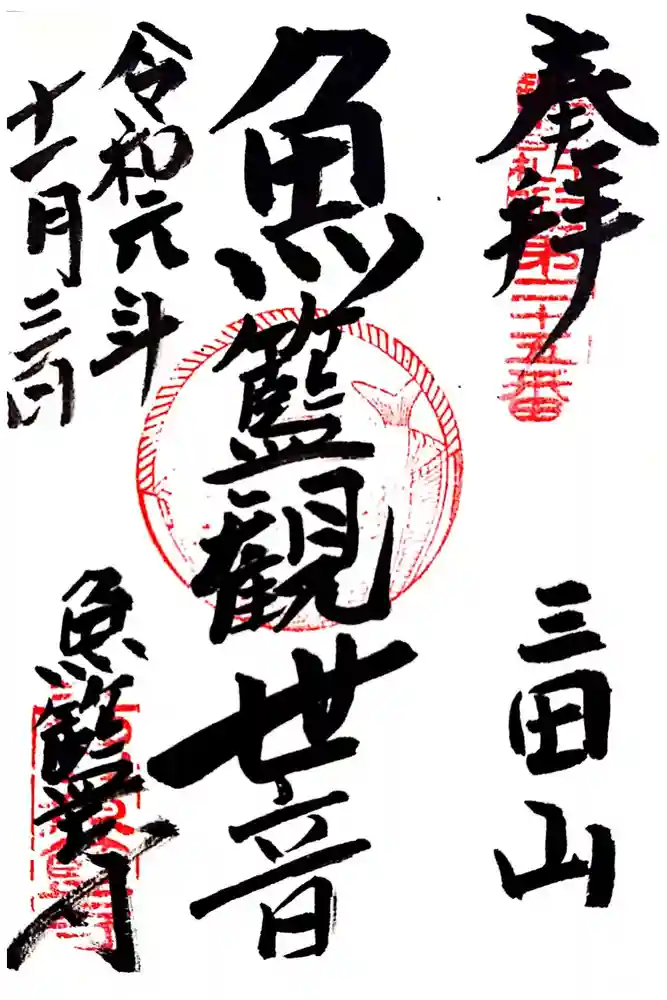 奉拝
第二十五番
三田山
魚籃観世音
令和元年
十一月三日
魚籃寺